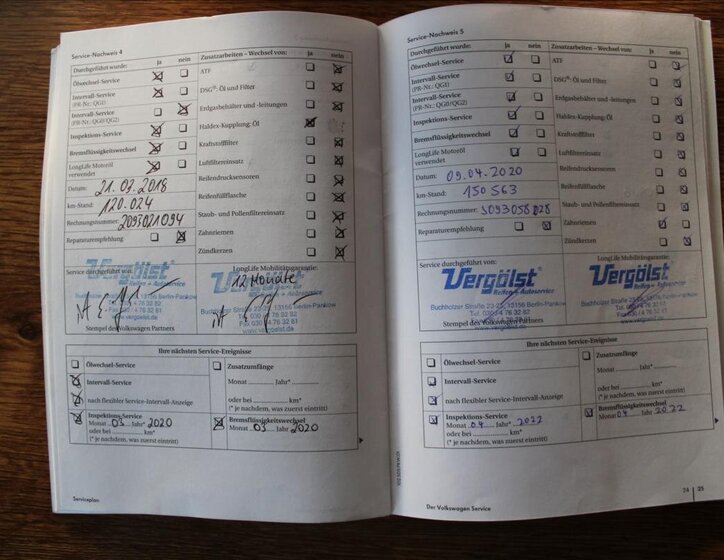 Service-Nachweis 4
Durchgeführt wurde: ja nein
Ölwechsel-Service
Intervall-Service
(PR-Nr.: QG1)
Intervall-Service
(PR-Nr.: QG0/QG2)
Inspektions-Service
Bremsflüssigkeitswechsel
LongLife Motoröl
verwendet
Datum: 21.03.2018
km-Stand: 120.024
Rechnungsnummer: 2093021094
Reparaturempfehlung
Zusatzarbeiten – Wechsel von: ja nein
ATF
DSG®: Öl und Filter
Erdgasbehälter und -leitungen
Haldex-Kupplung: Öl
Kraftstofffilter
Luftfiltereinsatz
Reifendrucksensoren
Reifenfüllflasche
Staub- und Pollenfiltereinsatz
Zahnriemen
Zündkerzen
Service durchgeführt von:
Vergölst
Reifen + Autoservice
13156 Berlin-Pankow
Stempel des Volkswagen Partners
LongLife Mobilitätsgarantie:
12 Monate
Fax 030 / 4 76 32 81
www.vergölst.de
Ihre nächsten Service-Ereignisse
Ölwechsel-Service
Intervall-Service
nach flexibler Service-Intervall-Anzeige
Inspektions-Service
Monat 03 Jahr* 2020
oder bei ............ km*
(* je nachdem, was zuerst eintritt)
Zusatzumfänge
Monat ............ Jahr* ............
oder bei ............ km*
(* je nachdem, was zuerst eintritt)
Bremsflüssigkeitswechsel
Monat 03 Jahr 2020
Serviceplan
Service-Nachweis 5
Durchgeführt wurde: ja nein
Ölwechsel-Service
Intervall-Service
(PR-Nr.: QG1)
Intervall-Service
(PR-Nr.: QG0/QG2)
Inspektions-Service
Bremsflüssigkeitswechsel
LongLife Motoröl
verwendet
Datum: 09.04.2020
km-Stand: 150 563
Rechnungsnummer: 3093058028
Reparaturempfehlung
Zusatzarbeiten – Wechsel von: ja nein
ATF
DSG®: Öl und Filter
Erdgasbehälter und -leitungen
Haldex-Kupplung: Öl
Kraftstofffilter
Luftfiltereinsatz
Reifendrucksensoren
Reifenfüllflasche
Staub- und Pollenfiltereinsatz
Zahnriemen
Zündkerzen
Service durchgeführt von:
Vergölst
Reifen + Autoservice
Buchholzer Straße 23-25, 13156 Berlin-Pankow
Stempel des Volkswagen Partners
Vergölst
Reifen + Autoservice
Buchholzer Straße 23-25, 13156 Berlin-Pankow
Ihre nächsten Service-Ereignisse
Ölwechsel-Service
Intervall-Service
nach flexibler Service-Intervall-Anzeige
Inspektions-Service
Monat 04 Jahr* 2022
oder bei ............ km*
(* je nachdem, was zuerst eintritt)
Zusatzumfänge
Monat ............ Jahr* ............
oder bei ............ km*
(* je nachdem, was zuerst eintritt)
Bremsflüssigkeitswechsel
Monat 04 Jahr 2022
24 | 25
Der Volkswagen Service